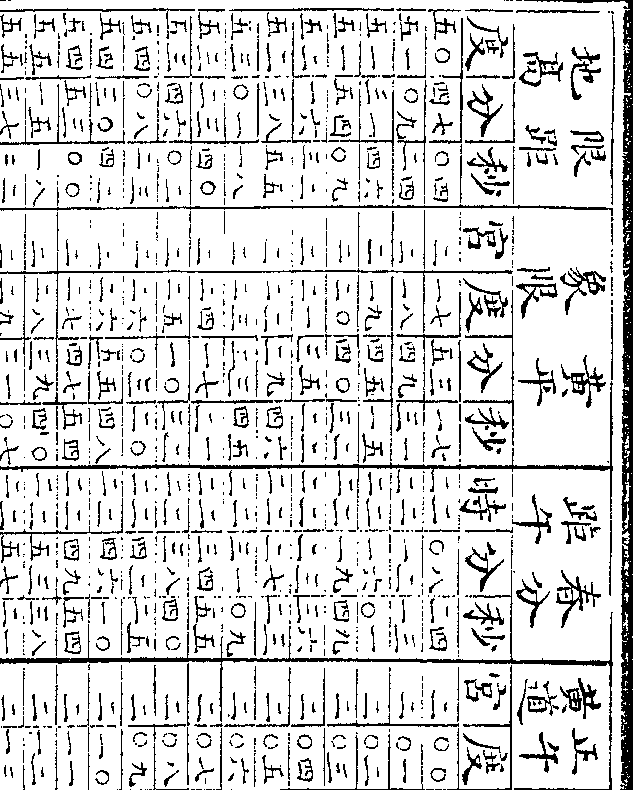 正午黄道 春分距午 黄平象限 限距地高
宮 度 時 分 秒 宮 度 分 秒 度 分 秒
二 〇〇 二二 〇八 二四 二 一七 五三 一七 五〇 四七 〇四
二 〇一 二二 一二 一三 二 一八 四九 三一 五一 〇九 二四
二 〇二 二二 一六 〇一 二 一九 四五 一五 五一 三一 四六
二 〇三 二二 一九 四九 二 二〇 四〇 三二 五一 五四 〇九
二 〇四 二二 二三 三六 二 二一 三五 二二 五二 一六 三二
二 〇五 二二 二七 二三 二 二二 二九 四六 五二 三八 五五
二 〇六 二二 三一 〇九 二 二三 二三 四五 五三 〇一 一八
二 〇七 二二 三四 五五 二 二四 一七 二一 五三 二三 四〇
二 〇八 二二 三八 四〇 二 二五 一〇 三二 五三 四六 〇二
二 〇九 二二 四二 二五 二 二六 〇三 二〇 五四 〇八 二三
二 一〇 二二 四六 一〇 二 二六 五五 四八 五四 三〇 四二
二 一一 二二 四九 五四 二 二七 四七 五四 五四 五三 〇〇
二 一二 二二 五三 三八 二 二八 三九 四〇 五五 一五 一八
二 一三 二二 五七 二一 二 二九 三一 〇七 五五 三七 三二